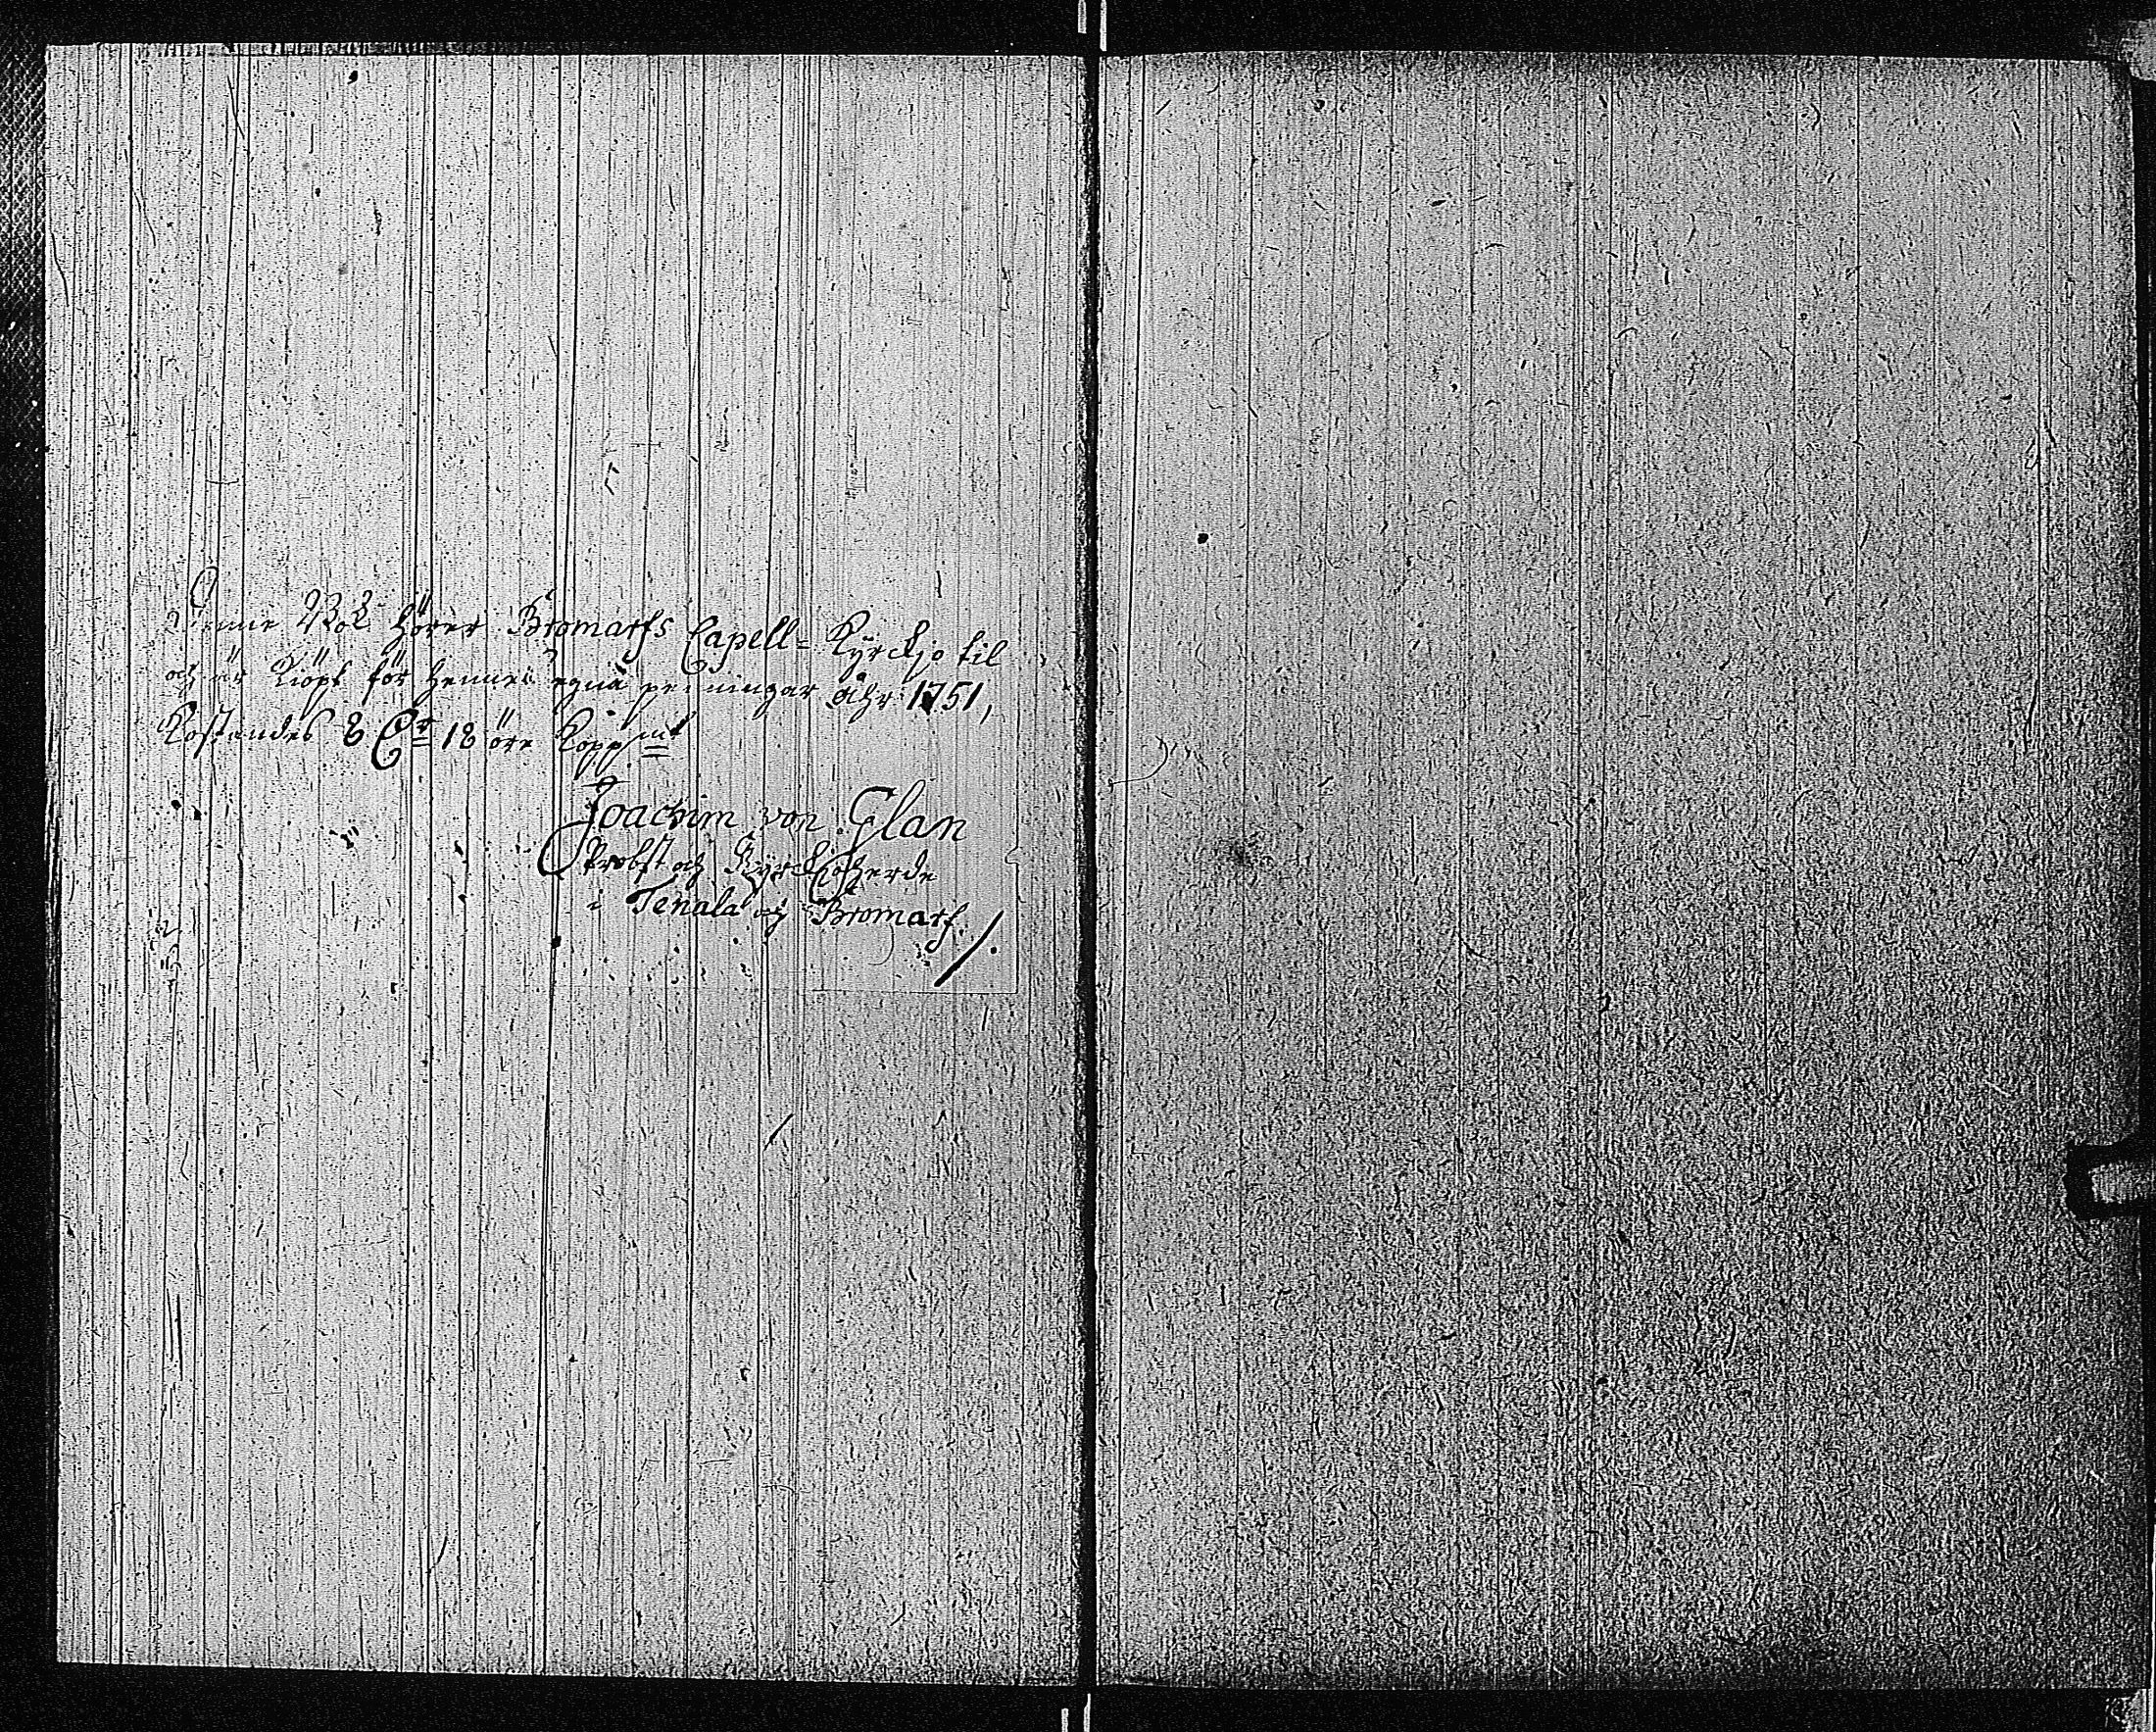 Denne Bok hörer Bromarfs Capell=Kyrckjo til
och är Kiöpt för hennes egna penningar åhr 1751,
Kostandes 8 Dr 18 öre Koppmt
Joachim von Glan
Probst och Kyrckjoherde
i Tenala och Bromarf. /.